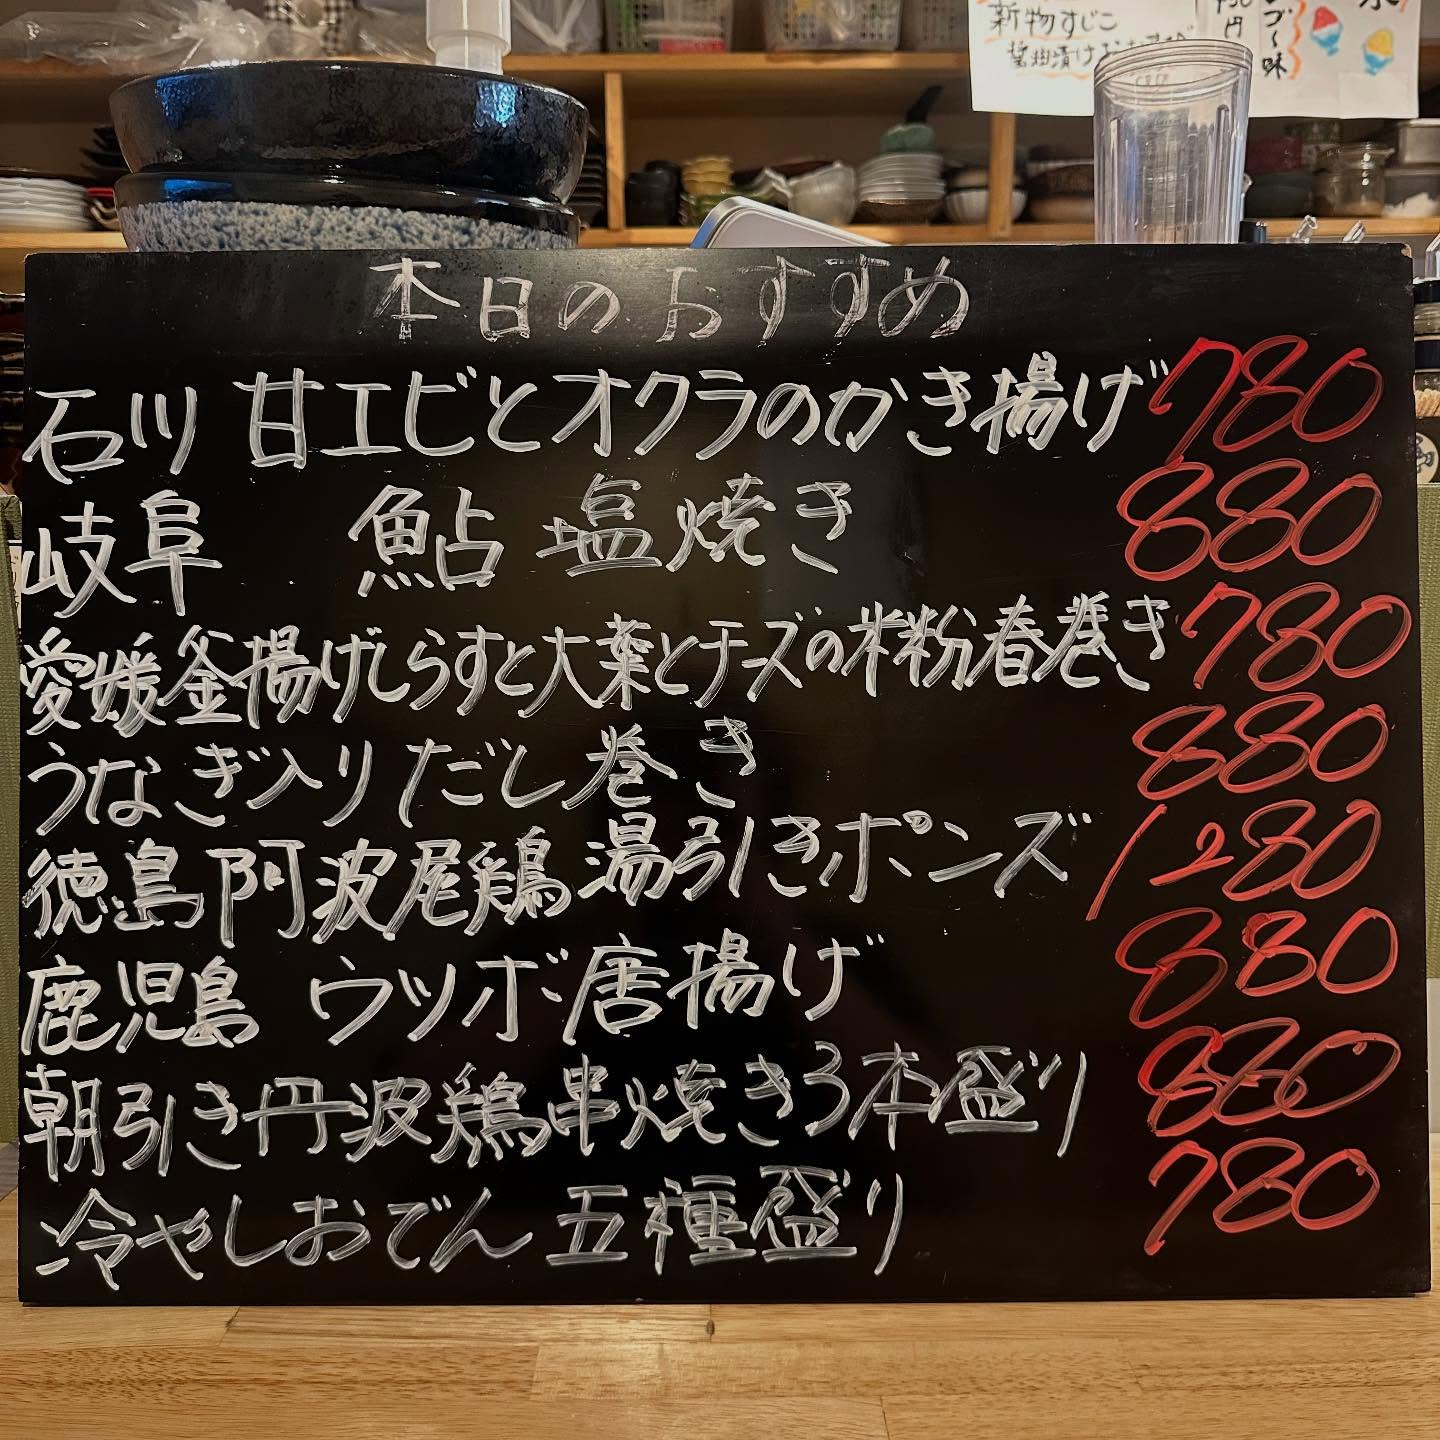 新物すじこ
醤油漬け
円
味
本日のおすすめ
石川 甘エビとオクラのかき揚げ 780
岐阜 鮎 塩焼き 880
愛媛釜揚げしらすと大葉とチーズの米粉春巻き 780
うなぎ入りだし巻き 880
徳島阿波尾鶏湯引きポンズ 1280
鹿児島 ウツボ唐揚げ 880
朝引き丹波鶏串焼き3本盛り 880
冷やしおでん 五種盛り 780